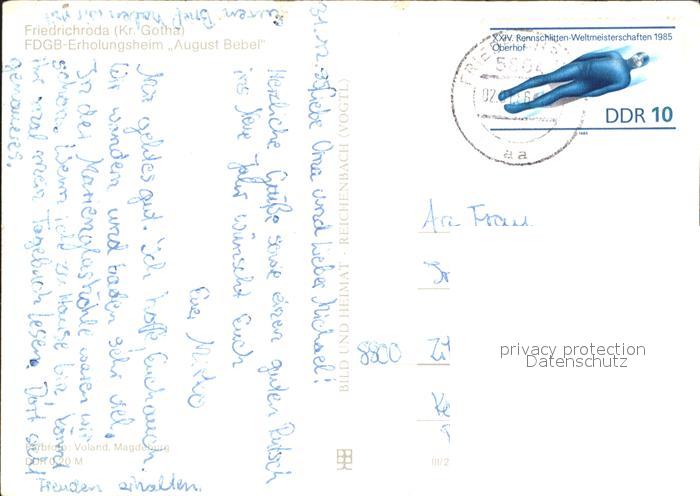 Friedrichroda (Kr. Gotha)
FDGB-Erholungsheim „August Bebel"
31.12.
Liebe Oma und lieber Michael!
Herzliche Grüße sowie einen guten Rutsch
ins Neue Jahr wünscht Euch
Euer Mirko
Mir geht es gut. Ich hoffe, Euch auch.
Wir wandern und baden sehr viel.
In der Marienglashöhle waren wir
schon. Wenn ich zu Hause bin, könnt
ihr mal mein Tagebuch lesen. Dort steht
genaueres.
Euren Brief haben wir mit
Freuden erhalten.
Farbfoto: Voland, Magdeburg
DDR 0,20 M
BILD UND HEIMAT · REICHENBACH (VOGTL)
III/2
XXIV. Rennschlitten-Weltmeisterschaften 1985
Oberhof
DDR 10
1985
5804
02.
aa
An Frau
8800 Zit
privacy protection
Datenschutz